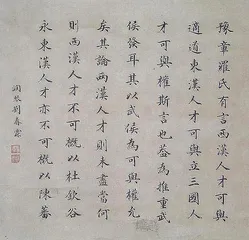 豫章羅氏有言西漢人才可與
適道東漢人才可與立三國人
才可與權斯言也蓋為推重武
侯發耳其以武侯為可與權允
矣其論兩漢人才則未盡當何
則西漢人才不可概以杜欽谷
永東漢人才亦不可概以陳蕃
潤琴劉春霖